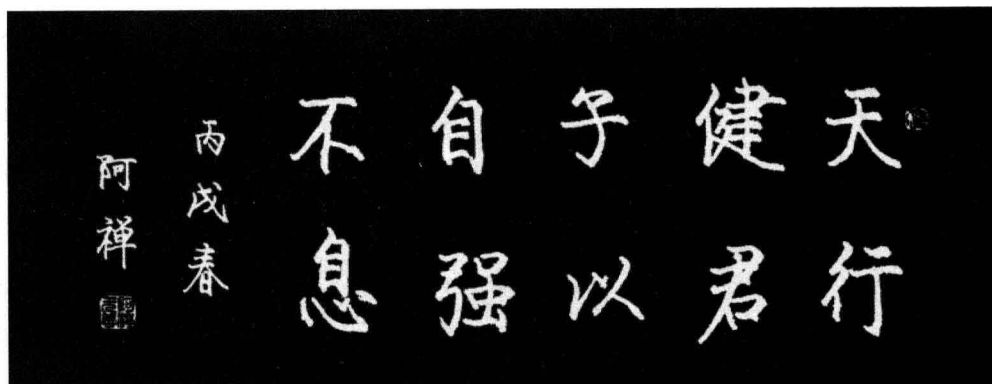 天行
健君
子以
自强
不息
丙戌春
阿禅